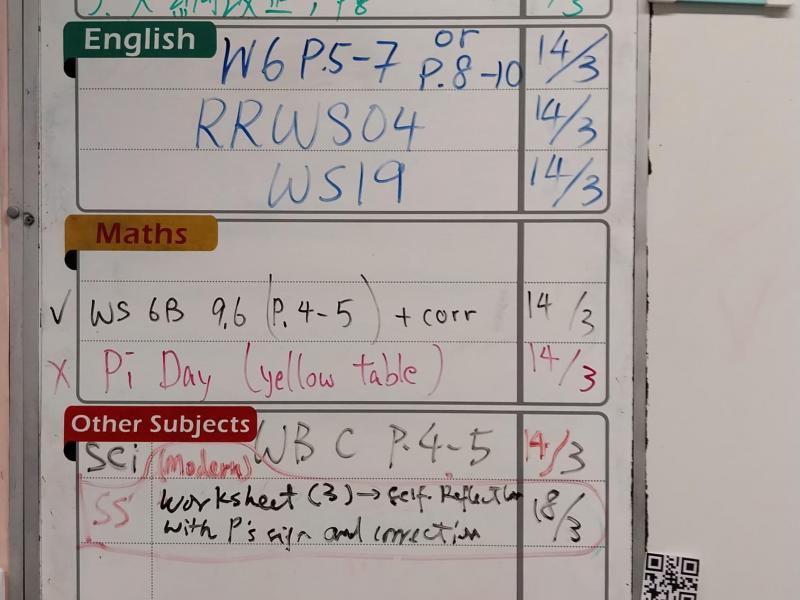 English
W6 P.5-7 or P.8-10 14/3
RRWS04 14/3
WS19 14/3
Maths
√ WS 6B 9.6 (P.4-5) + corr 14/3
X Pi Day (yellow table) 14/3
Other Subjects
Sci WB C P.4-5 14/3
(Modern)
SS Worksheet (3) → self-Reflection 18/3
with P's sign and correction